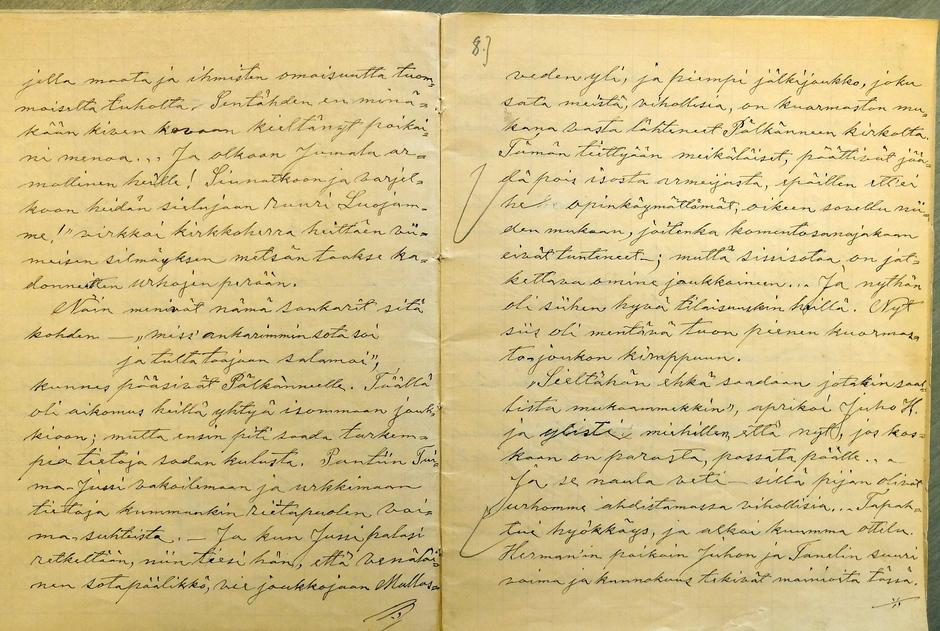 jella maata ja ihmisten omaisuutta tuom,
moiselta tuholta. Sentähden en minä-
kään kiven kovaan kieltänyt poikai-
ni menoa... Ja olkoon Jumala ar-
mollinen heille! Siunatkoon ja varjel-
koon heidän sielujaan suuri Luojam-
me!" virkkoi kirkkoherra heittäen vii-
meisen silmäyksen metsän taakse ka-
donneitten urhojen perään.
Näin menivät nämä sankarit sitä
kohden — "miss' ankarimmin sota soi
ja tulta taajaan salamoi",
kunnes pääsivät Pälkäneelle. Täällä
oli aikomus heillä yhtyä isommaan jouk-
kioon; mutta ensin piti saada tarkem-
pia tietoja sodan kulusta. Pantiin Tui-
ma-Jussi vakoilemaan ja urkkimaan
tietoja kummankin rietapuolen voi-
ma-suhteista. — Ja kun Jussi palasi
retkeltään, niin tiesi hän, että venäläi-
nen sotapäälikkö, vie joukkojaan Mallas-
8.)
veden yli, ja piempi jälkijoukko, joku
sata meistä, vihollisia, on kuormaston mu-
kana vasta lähteneet Pälkänneen kirkolta.
Tämän tiettyään meikäläiset, päättivät jää-
dä pois isosta armeijasta, epäillen ettei
he opinkäymättömät, oikeen sovellu nii-
den mukaan, joitenka komentosanojakaan
eivät tunteneet —; mutta sissisotaa on jat-
kettava omine joukkoineen... Ja nythän
oli siihen hyvä tilaisuuskin heillä. Nyt
siis oli mentävä tuon pienen kuormas-
tojoukon kimppuun.
"Sieltähän ehkä saadaan jotakin saal-
lista mukaammekkin", aprikoi Juho H.
ja miehillen, että nyt, jos kos-
kaan on parasta, passata päälle...
Ja, se naula veti — sillä pijan olivat
urhomme ahdistamassa vihollisia... Tapah-
tui hyökkäys, ja alkoi kuumma ottelu.
Herman'in poikain Juhon ja Tanelin suuri
voima ja kunnokuus tekivät mainiosta tässä.